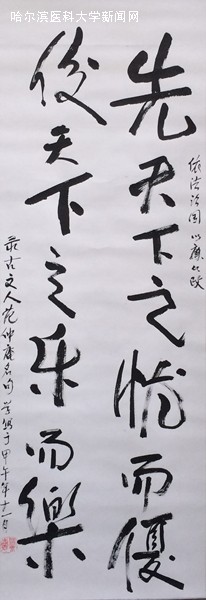 哈尔滨医科大学新闻网
依法治国 以廉
先天下之忧而優
後天下之乐而樂
录古文人范仲淹名句 于甲午年十一月